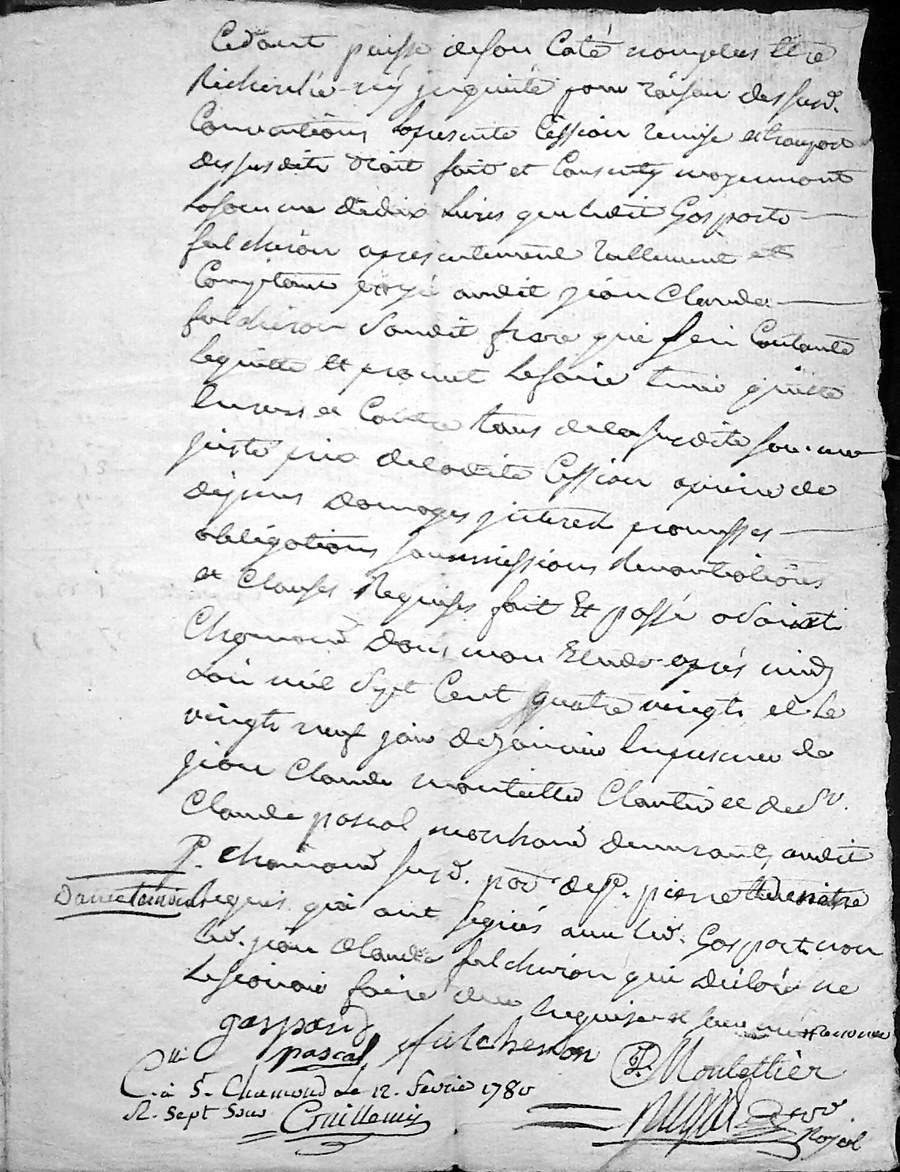 Cedant puisse de son Coté non plus Etre
Recherché ny inquiété pour raison des susd.
Conventions la presente Cession remise et transport
des susdits droit fait et Consenty moyennant
la somme de dix livres que ledit Gaspard
fulchiron a presentement reellement et
Comptant payé audit jean Claude
fulchiron sondit frere qui s'en Contente
l'en quitte Et promet le faire tenir quitte
envers et Contre tous de la susdite somme
juste prix de ladite Cession a peine de
depens domages interets promesses
obligations soumissions Renontiations
et Clauses Requises fait Et passé a Saint
Chamond Dans mon Etude apres midy
L'an mil Sept Cent quatre vingts et Le
vingt neuf janvier En presence de
jean Claude et de Sr.
Claude pascal marchand demeurants audit
St. chamond susd. par. de St. pierre
Dame temoins Requis qui ont signés avec led. Gaspard non
led. jean Claude fulchiron qui a déclaré ne
Le sçavoir faire de ce Enquis et sommé
gaspard fulcheron
pascal P. Moulettier
C.lle à St. Chamond Le 12. fevrie 1780
R. Sept Sous
Royal